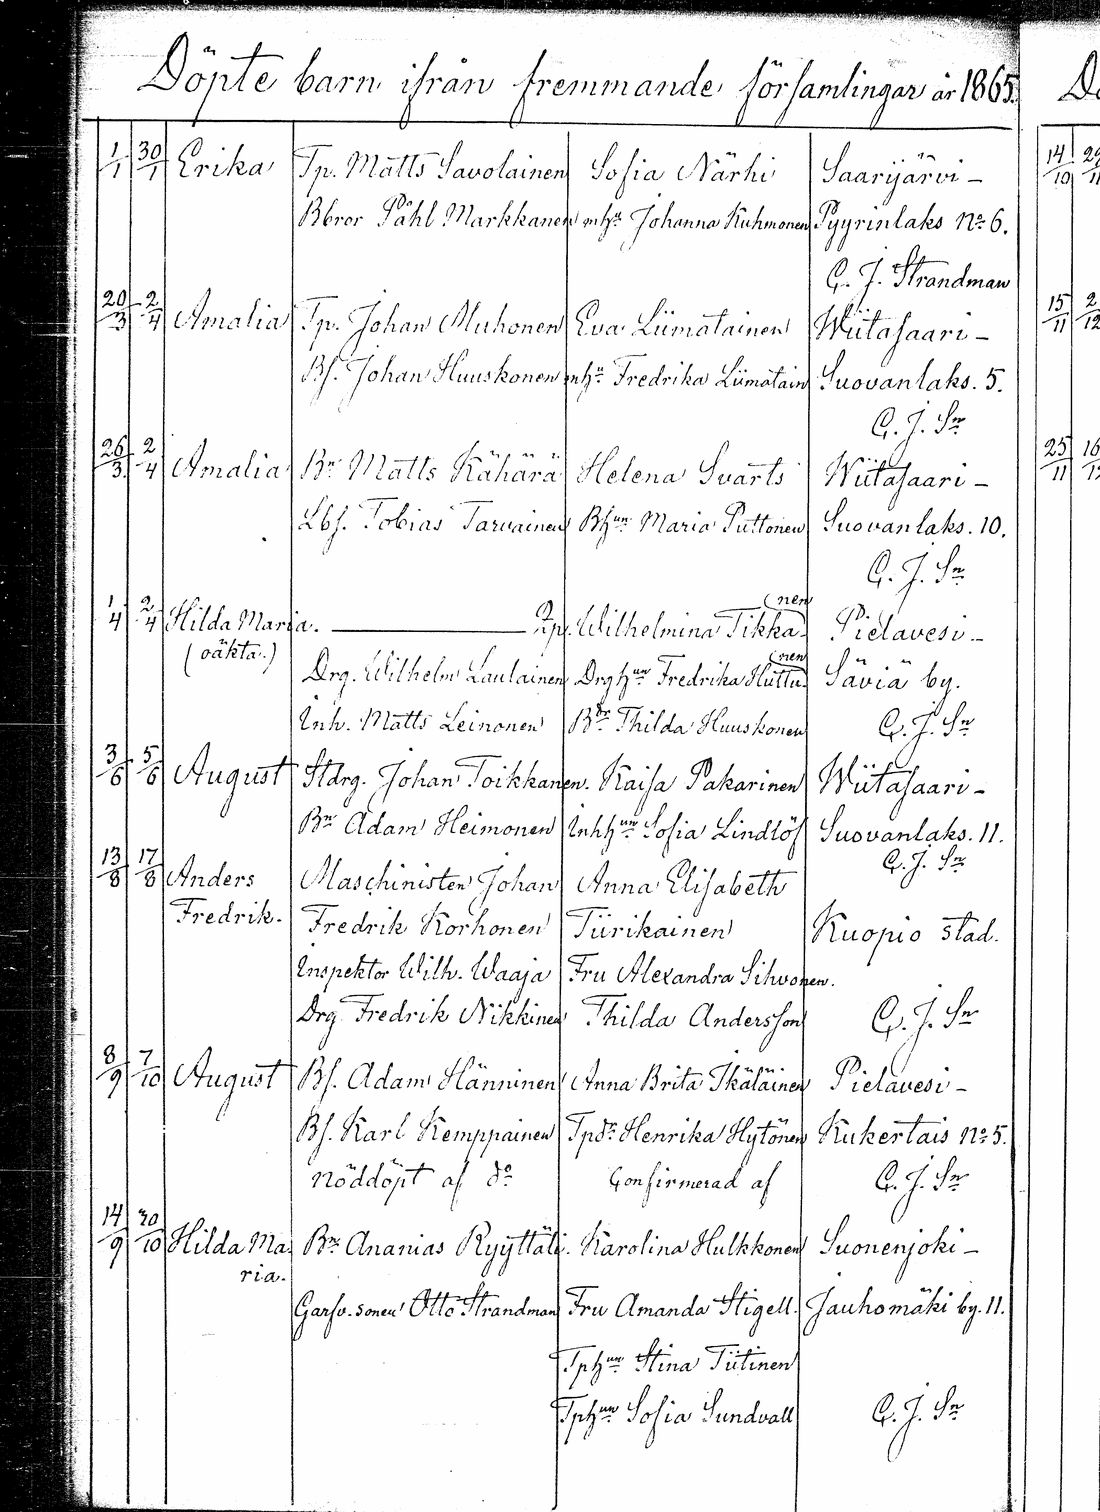 Döpte barn ifrån fremmande församlingar år 1865.
1/1 30/1 Erika Tp. Matts Savolainen Sofia Närhi Saarijärvi –
Bbror Påhl Markkanen mhu Johanna Kuhmonen Pyyrinlaks No 6.
C. J. Strandman
20/3 2/4 Amalia Tp. Johan Muhonen Eva Liimatainen Wiitasaari –
Bs. Johan Huuskonen mhu Fredrika Liimatain Suovanlaks. 5.
C. J. Sn
26/3 2/4 Amalia Bn Matts Kähärä Helena Svarts Wiitasaari –
Lbs. Tobias Tarvainen Bhun Maria Puttonen Suovanlaks. 10.
C. J. Sn
1/4 2/4 Hilda Maria. Wilhelmina Tikka(nen Pielavesi –
(oäkta.) Drg. Wilhelm Laulainen Drghun Fredrika Huttu(nen Säviä by.
Inh. Matts Leinonen Bdr Thilda Huuskonen C. J. Sn
3/6 5/6 August Stdrg. Johan Toikkanen. Kaisa Pakarinen Wiitasaari –
Bn Adam Heimonen Inhhun Sofia Lindlöf Suovanlaks. 11.
C. J. Sn
13/8 17/8 Anders Maschinisten Johan Anna Elisabeth
Fredrik. Fredrik Korhonen Tiirikainen Kuopio stad.
Inspektor Wilh. Waaja Fru Alexandra Sihvonen.
Drg Fredrik Nikkinen Thilda Andersson C. J. Sn
8/9 7/10 August Bs. Adam Hänninen Anna Brita Ikäläinen Pielavesi –
Bs. Karl Kemppainen Tpdr Henrika Hytönen Kukertais No 5.
nöddöpt af do Confirmerad af C. J. Sn
14/9 20/10 Hilda Ma- Bn Ananias Ryyttäli. Karolina Hulkkonen Suonenjoki –
ria.
Garfv. sonen Otto Strandman Fru Amanda Stigell. Jauhomäki by. 11.
Tphun Stina Tiitinen
Tphun Sofia Sundvall C. J. Sn